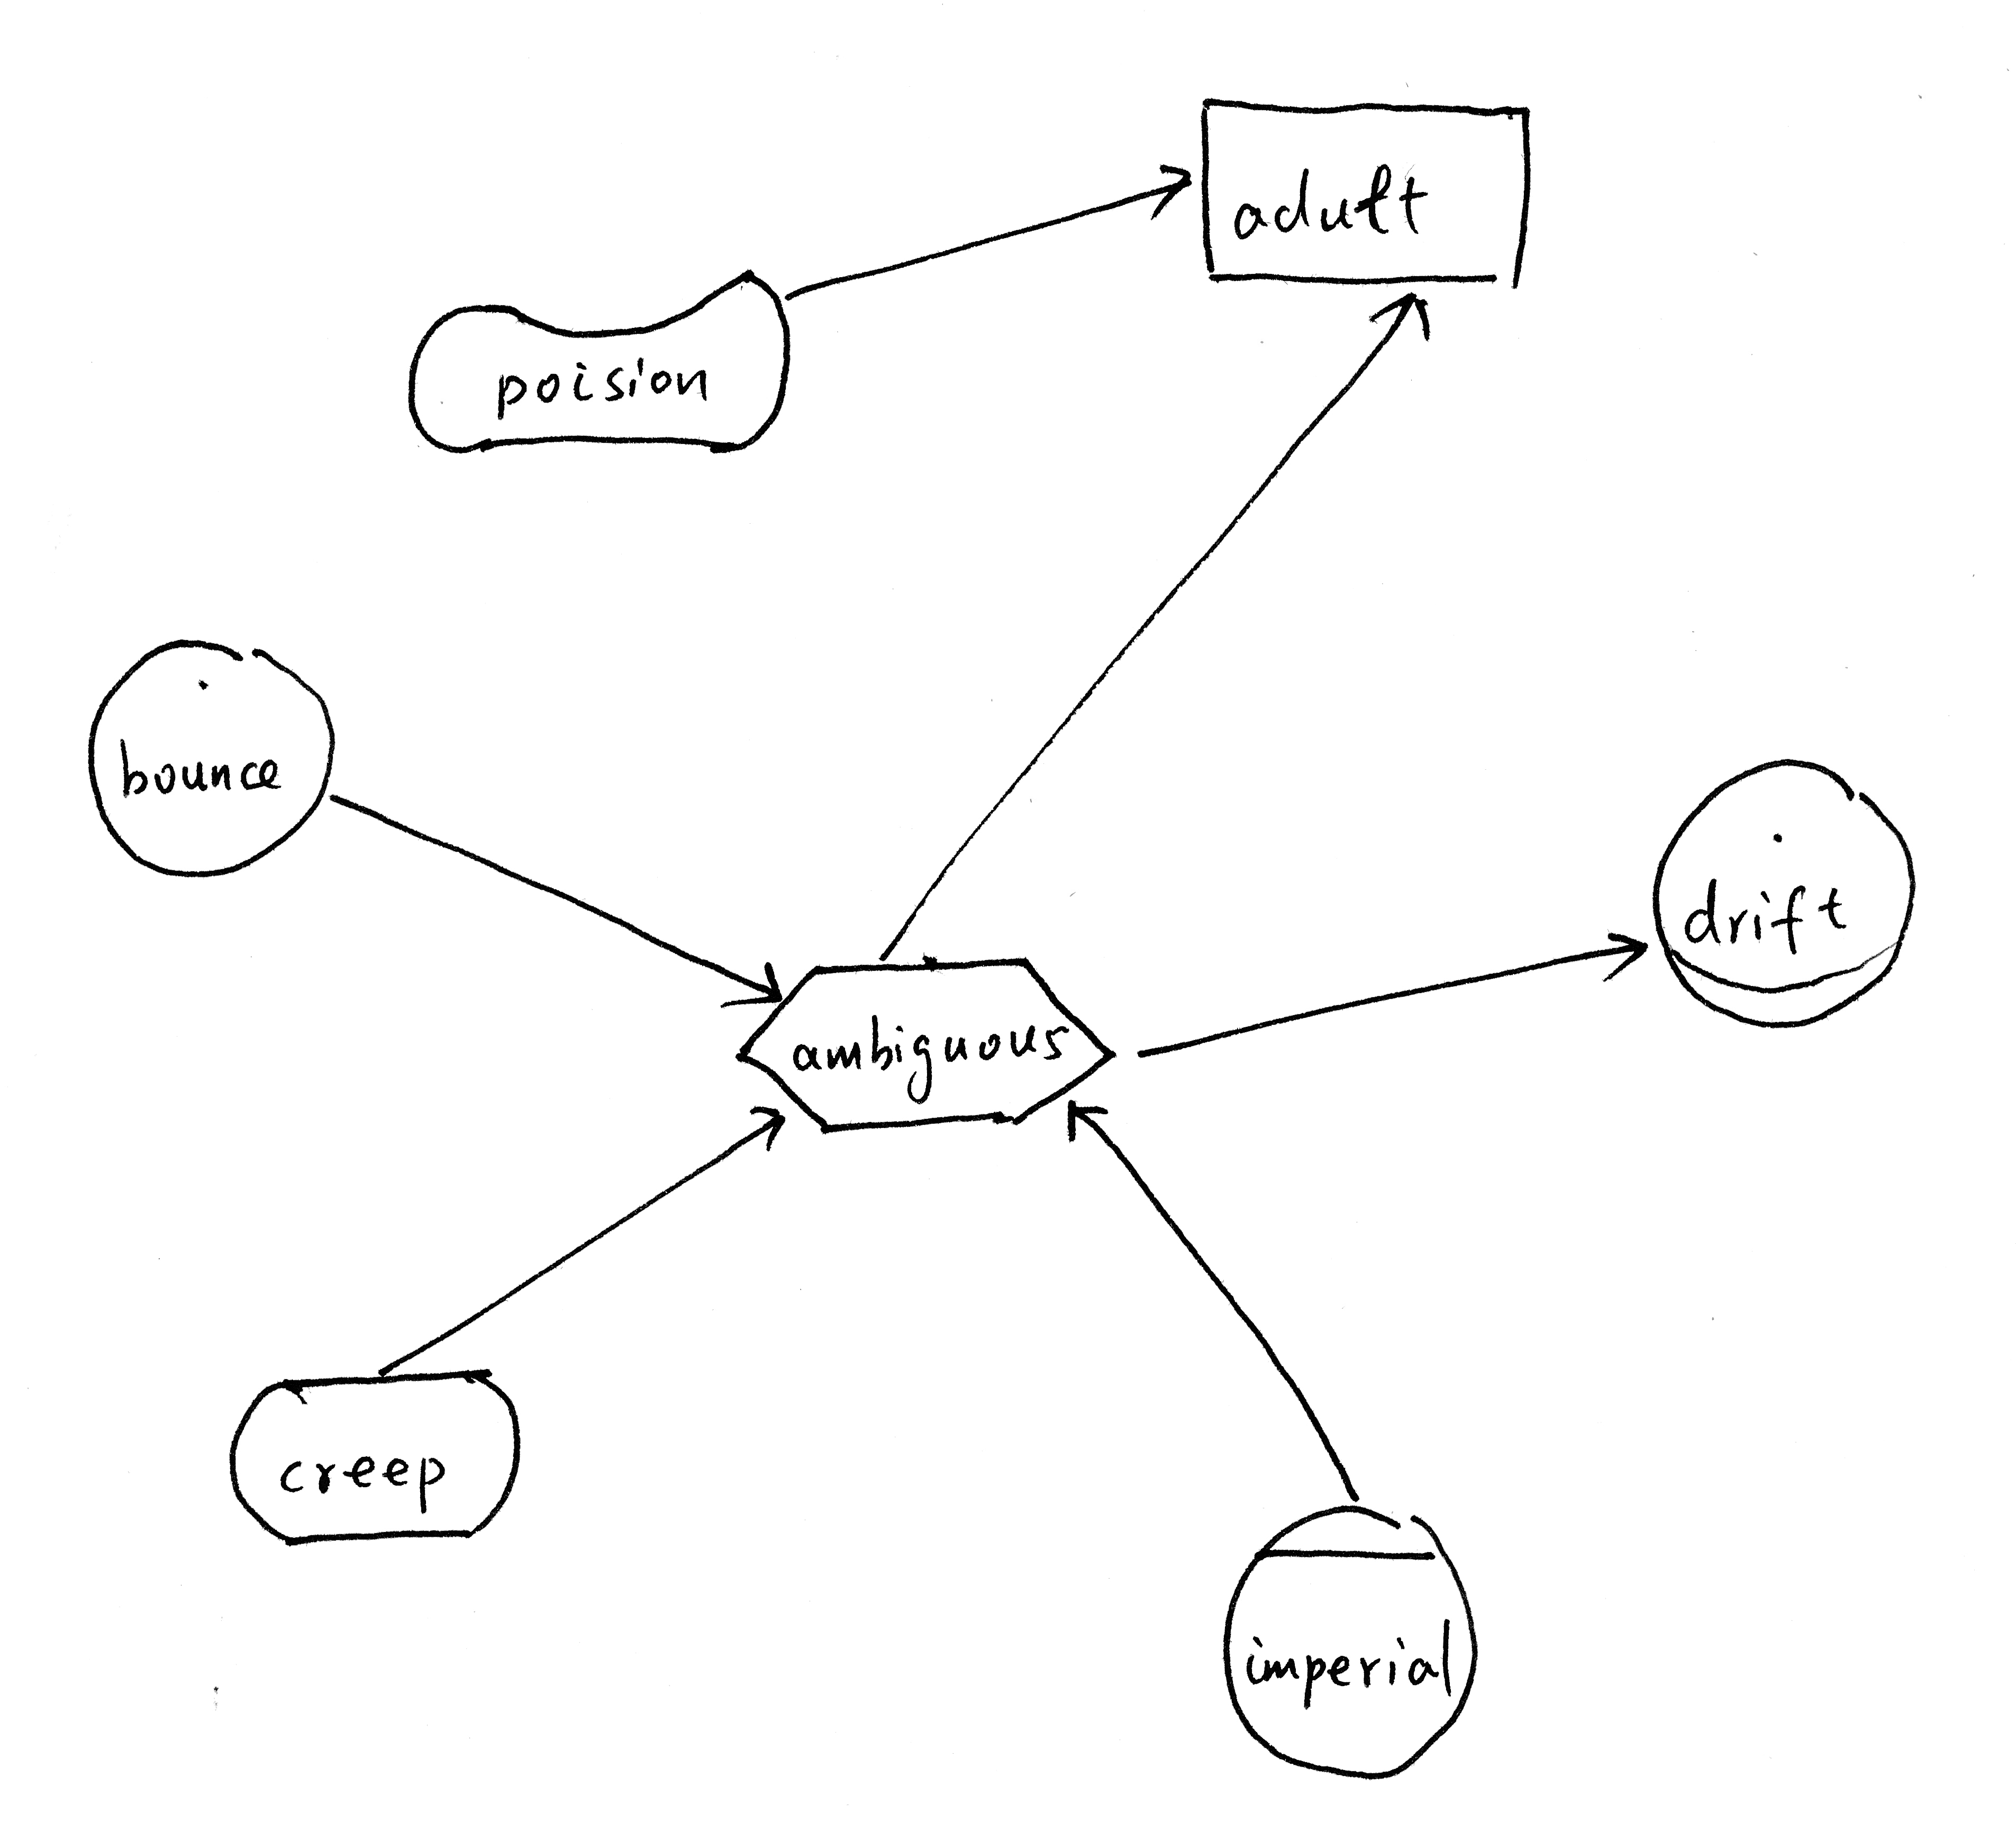 adult
poision
bounce
drift
ambiguous
creep
imperial